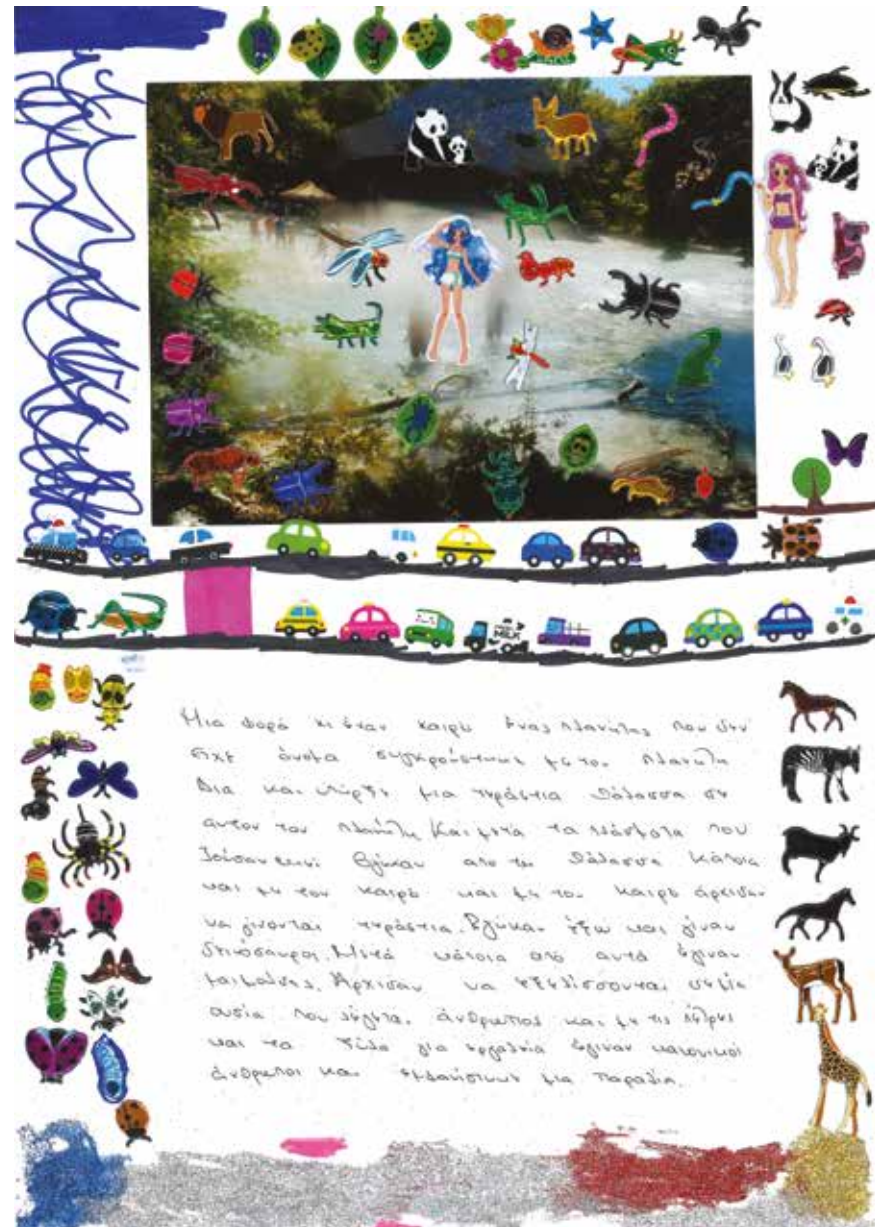 MILK
Μια φορά κι έναν καιρό ένας πλανήτης που δεν
είχε όνομα συγκρούστηκε με τον πλανήτη
Δια και υπήρξε μια τεράστια θάλασσα σε
αυτον τον πλανήτη. Και μετά τα πλάσματα που
ζούσαν εκεί βγήκαν απο τη θάλασσα κάποια
και με τον καιρό και με τον καιρό άρχισαν
να γίνονται τεράστια. Βγήκαν έξω και γίναν
δεινόσαυροι. Μετά κάποια από αυτά έγιναν
μαϊμούδες. Άρχισαν να εξελίσσονται σε μία
ουσία που λέγεται άνθρωπος και με τις πέτρες
και τα ξύλα για εργαλεία έγιναν κανονικοί
άνθρωποι και μια παραλία.